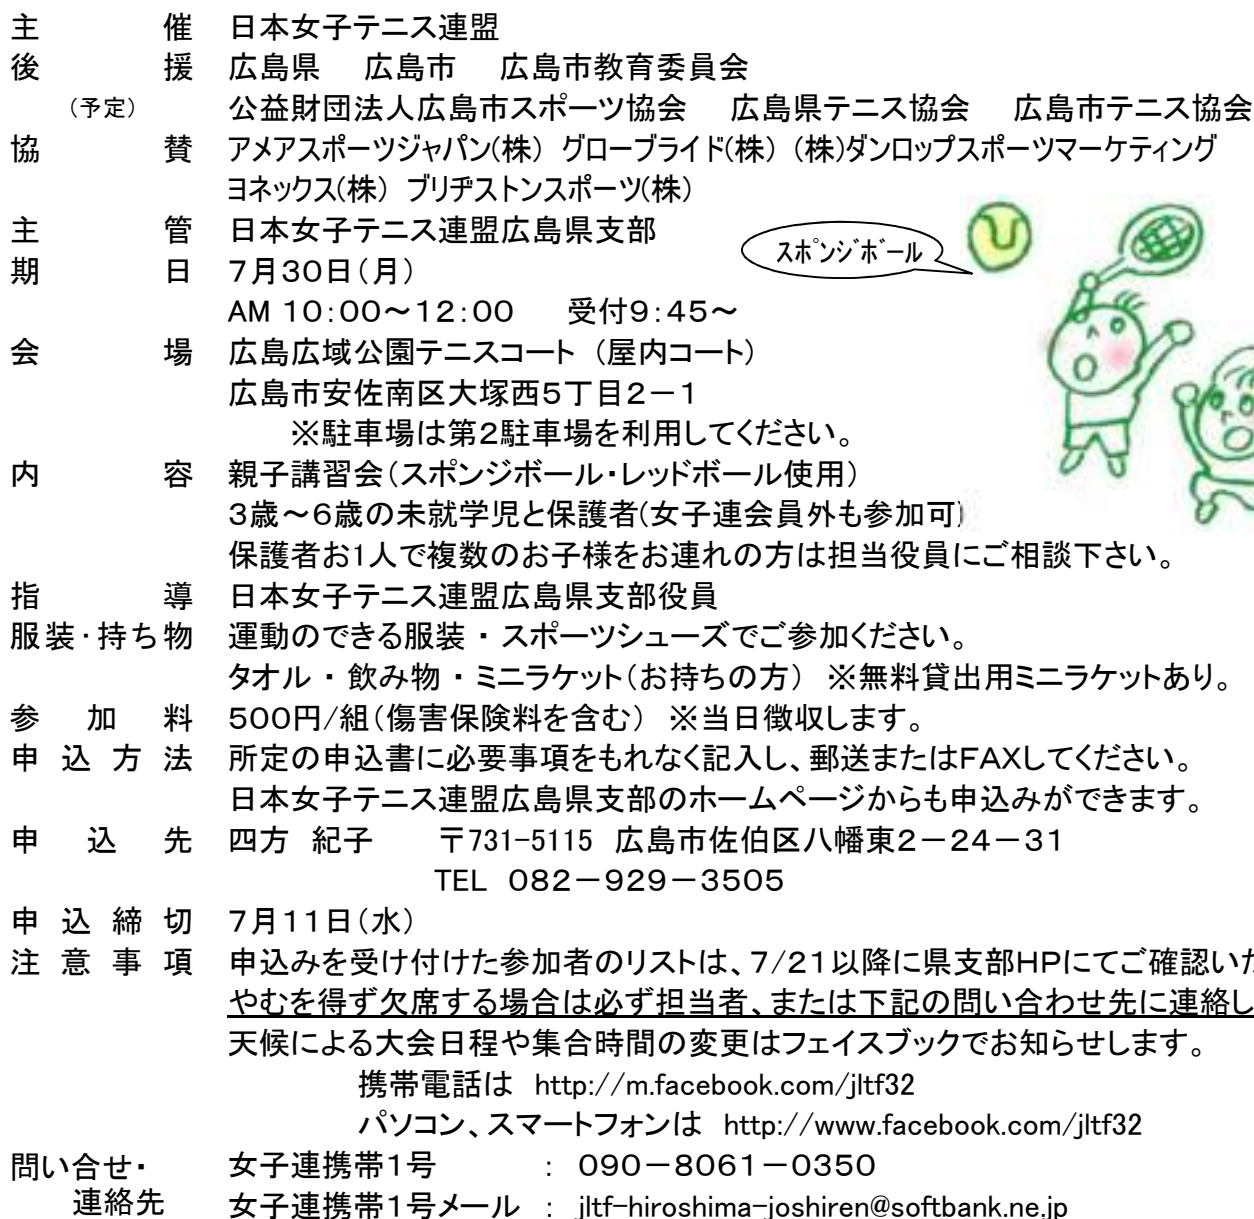 主催 日本女子テニス連盟
後援 広島県 広島市 広島市教育委員会
(予定) 公益財団法人広島市スポーツ協会 広島県テニス協会 広島市テニス協会
協賛 アメアスポーツジャパン(株) グローブライド(株) (株)ダンロップスポーツマーケティング
ヨネックス(株) ブリヂストンスポーツ(株)
主管 日本女子テニス連盟広島県支部
スポンジボール
期日 7月30日(月)
AM 10:00~12:00 受付9:45~
会場 広島広域公園テニスコート (屋内コート)
広島市安佐南区大塚西5丁目2-1
※駐車場は第2駐車場を利用してください。
内容 親子講習会(スポンジボール・レッドボール使用)
3歳~6歳の未就学児と保護者(女子連会員外も参加可)
保護者お1人で複数のお子様をお連れの方は担当役員にご相談下さい。
指導 日本女子テニス連盟広島県支部役員
服装・持ち物 運動のできる服装 ・ スポーツシューズでご参加ください。
タオル ・ 飲み物 ・ ミニラケット(お持ちの方) ※無料貸出用ミニラケットあり。
参加料 500円/組(傷害保険料を含む) ※当日徴収します。
申込方法 所定の申込書に必要事項をもれなく記入し、郵送またはFAXしてください。
日本女子テニス連盟広島県支部のホームページからも申込みができます。
申込先 四方 紀子 〒731-5115 広島市佐伯区八幡東2-24-31
TEL 082-929-3505
申込締切 7月11日(水)
注意事項 申込みを受け付けた参加者のリストは、7/21以降に県支部HPにてご確認いた
やむを得ず欠席する場合は必ず担当者、または下記の問い合わせ先に連絡し
天候による大会日程や集合時間の変更はフェイスブックでお知らせします。
携帯電話は http://m.facebook.com/jltf32
パソコン、スマートフォンは http://www.facebook.com/jltf32
問い合せ・ 女子連携帯1号 : 090-8061-0350
連絡先 女子連携帯1号メール : jltf-hiroshima-joshiren@softbank.ne.jp